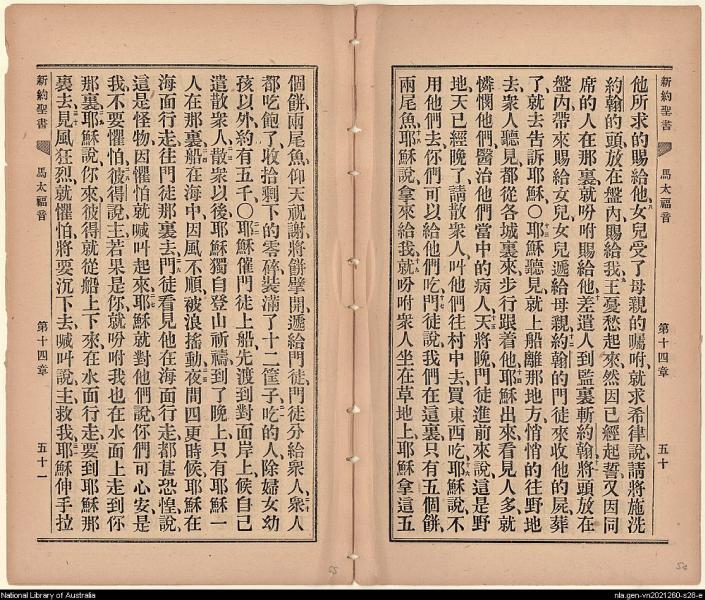 新約聖書 馬太福音 第十四章 五十
他所求的賜給他女兒受了母親的囑咐就求希律說請將施洗
約翰的頭放在盤內賜給我王憂愁起來然因已經起誓又因同
席的人在那裏就吩咐賜給他差遣人到監裏斬約翰將頭放在
盤內帶來賜給女兒女兒遞給母親約翰的門徒來收他的屍葬
了就去告訴耶穌〇耶穌聽見就上船離那地方悄悄的往野地
去衆人聽見都從各城裏來步行跟着他耶穌出來看見人多就
憐憫他們醫治他們當中的病人天將晚門徒進前來說這是野
地天已經晚了請散衆人叫他們往村中去買東西吃耶穌說不
用他們去你們可以給他們吃門徒說我們在這裏只有五個餅
兩尾魚耶穌說拿來給我就吩咐衆人坐在草地上耶穌拿這五
個餅兩尾魚仰天祝謝將餅擘開遞給門徒門徒分給衆人衆人
都吃飽了收拾剩下的零碎裝滿了十二筐子吃的人除婦女幼
孩以外約有五千〇耶穌催門徒上船先渡到對面岸上候自己
遣散衆人散衆以後耶穌獨自登山祈禱到了晚上只有耶穌一
人在那裏船在海中因風不順被浪搖動夜間四更時候耶穌在
海面行走往門徒那裏去門徒看見他在海面行走都甚恐惶說
這是怪物因懼怕就喊叫起來耶穌就對他們說你們可心安是
我不要懼怕彼得說主若果是你就吩咐我也在水面上走到你
那裏耶穌說你來彼得就從船上下來在水面行走要到耶穌那
裏去見風狂烈就懼怕將要沉下去喊叫說主救我耶穌伸手拉
新約聖書 馬太福音 第十四章 五十一
National Library of Australia
nla.gen-vn2021260-s28-e